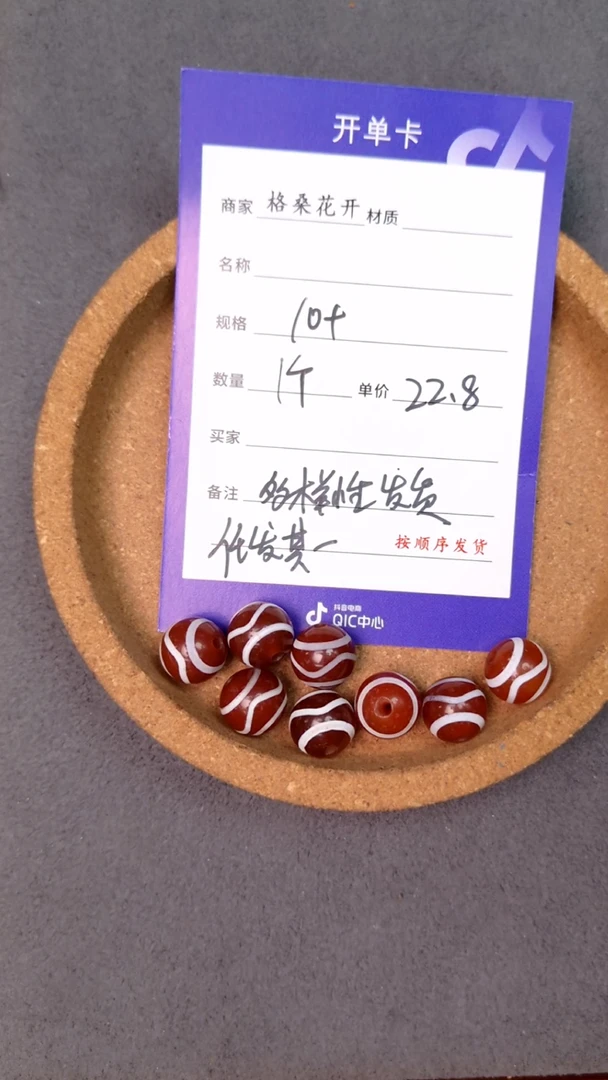 开单卡
商家 格桑花开 材质
名称
规格 10+
数量 1个 单价 22.8
买家
备注 多样性发货
任发其一 按顺序发货
抖音电商
QIC中心